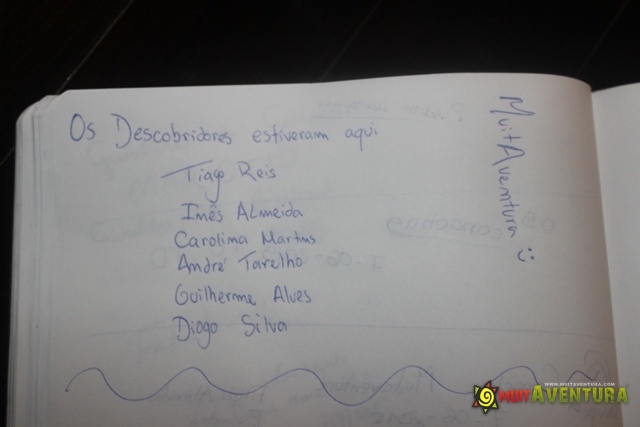 Os Descobridores estiveram aqui
Tiago Reis
Inês Almeida
Carolina Martins
André Tarelho
Guilherme Alves
Diogo Silva
MuitAventura :)
WWW.MUITAVENTURA.COM
MUITAVENTURA